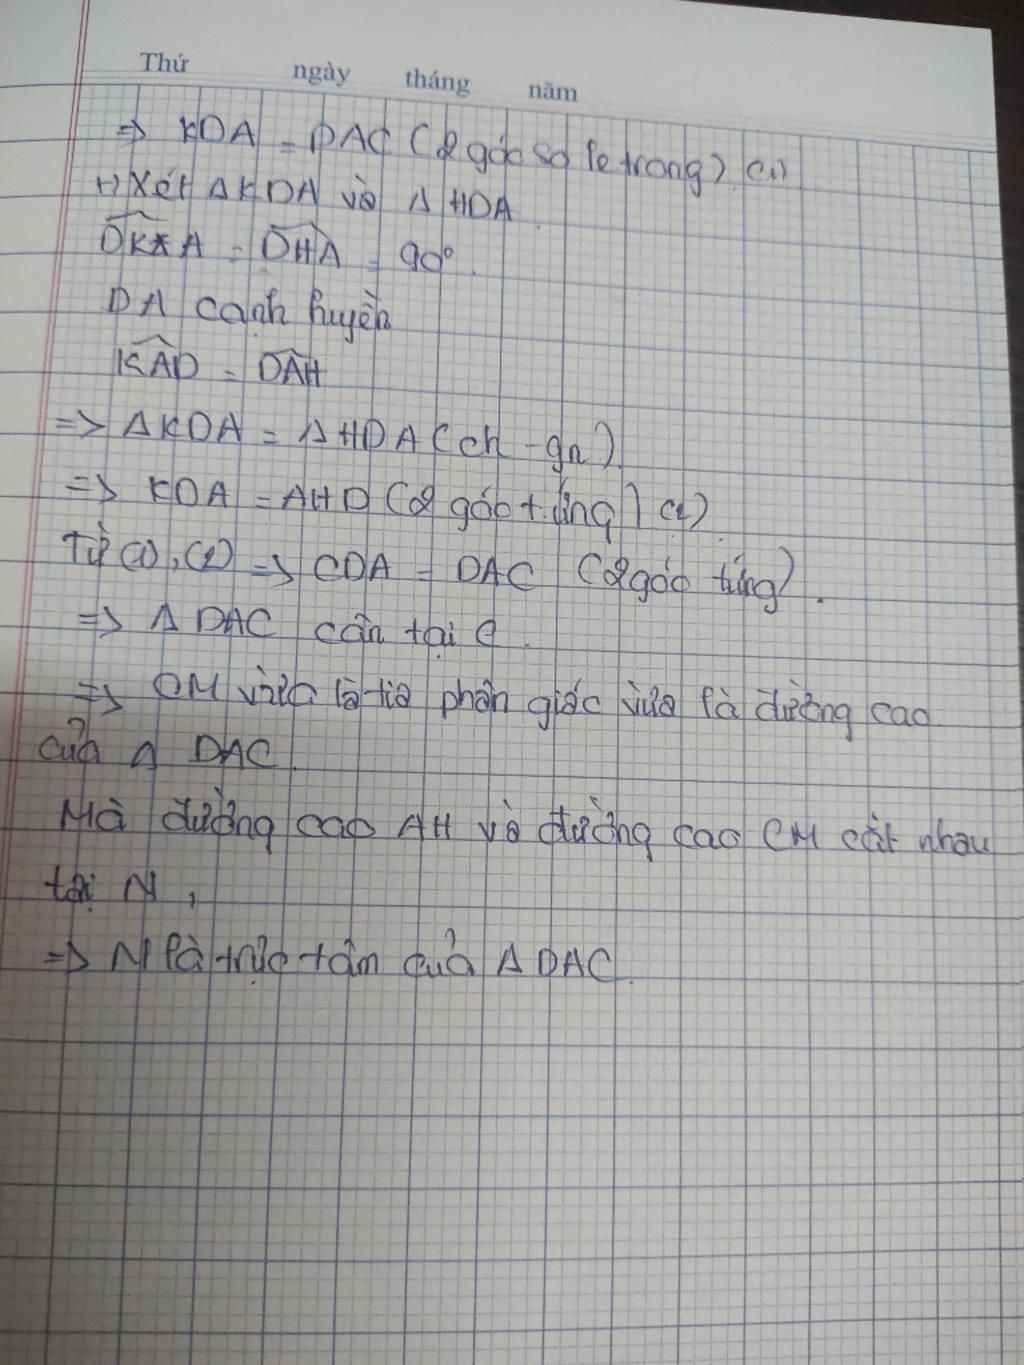 Thứ ngày tháng năm
=> KDA = DAC (2 góc so le trong) (1)
+) Xét Δ KDA và Δ HDA
DKA = DHA = 90°.
DA cạnh huyền
KAD = DAH
=> ΔKDA = ΔHDA (ch - gn)
=> KDA = AHD (2 góc t.ứng) (2)
Từ (1), (2) => CDA = DAC (2 góc tứng).
=> Δ DAC cân tại C.
=> CM vừa là tia phân giác vừa là đường cao
của Δ DAC.
Mà đường cao AH và đường cao CM cắt nhau
tại N,
=> N là trực tâm của Δ DAC.